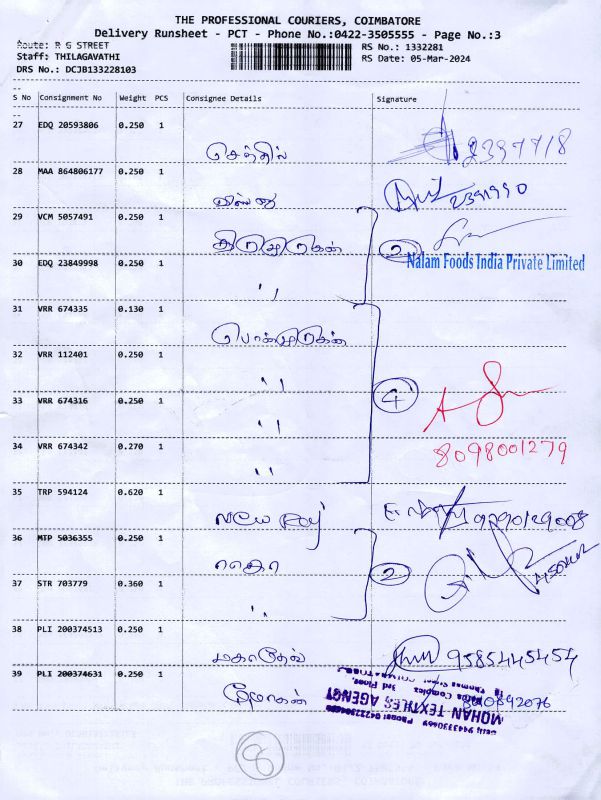 THE PROFESSIONAL COURIERS, COIMBATORE
Delivery Runsheet - PCT - Phone No.:0422-3505555 - Page No.:3
Route: R G STREET RS No.: 1332281
Staff: THILAGAVATHI RS Date: 05-Mar-2024
DRS No.: DCJB133228103
S No Consignment No Weight PCS Consignee Details Signature
27 EDQ 20593806 0.250 1
செந்தில் 2397718
28 MAA 864806177 0.250 1
விஸ்ணு 2391990
29 VCM 5057491 0.250 1
திருமுருகன் 2
Nalam Foods India Private Limited
30 EDQ 23849998 0.250 1
,,
31 VRR 674335 0.130 1
பொன்முருகன்
32 VRR 112401 0.250 1
,, 4
33 VRR 674316 0.250 1
,,
34 VRR 674342 0.270 1 8098001279
,,
35 TRP 594124 0.620 1
36 MTP 5036355 0.250 1
2
37 STR 703779 0.360 1
,,
38 PLI 200374513 0.250 1
மகாதேவ் 9585445454
39 PLI 200374631 0.250 1
8010892076
MOHAN TEXTILES AGENCY
8